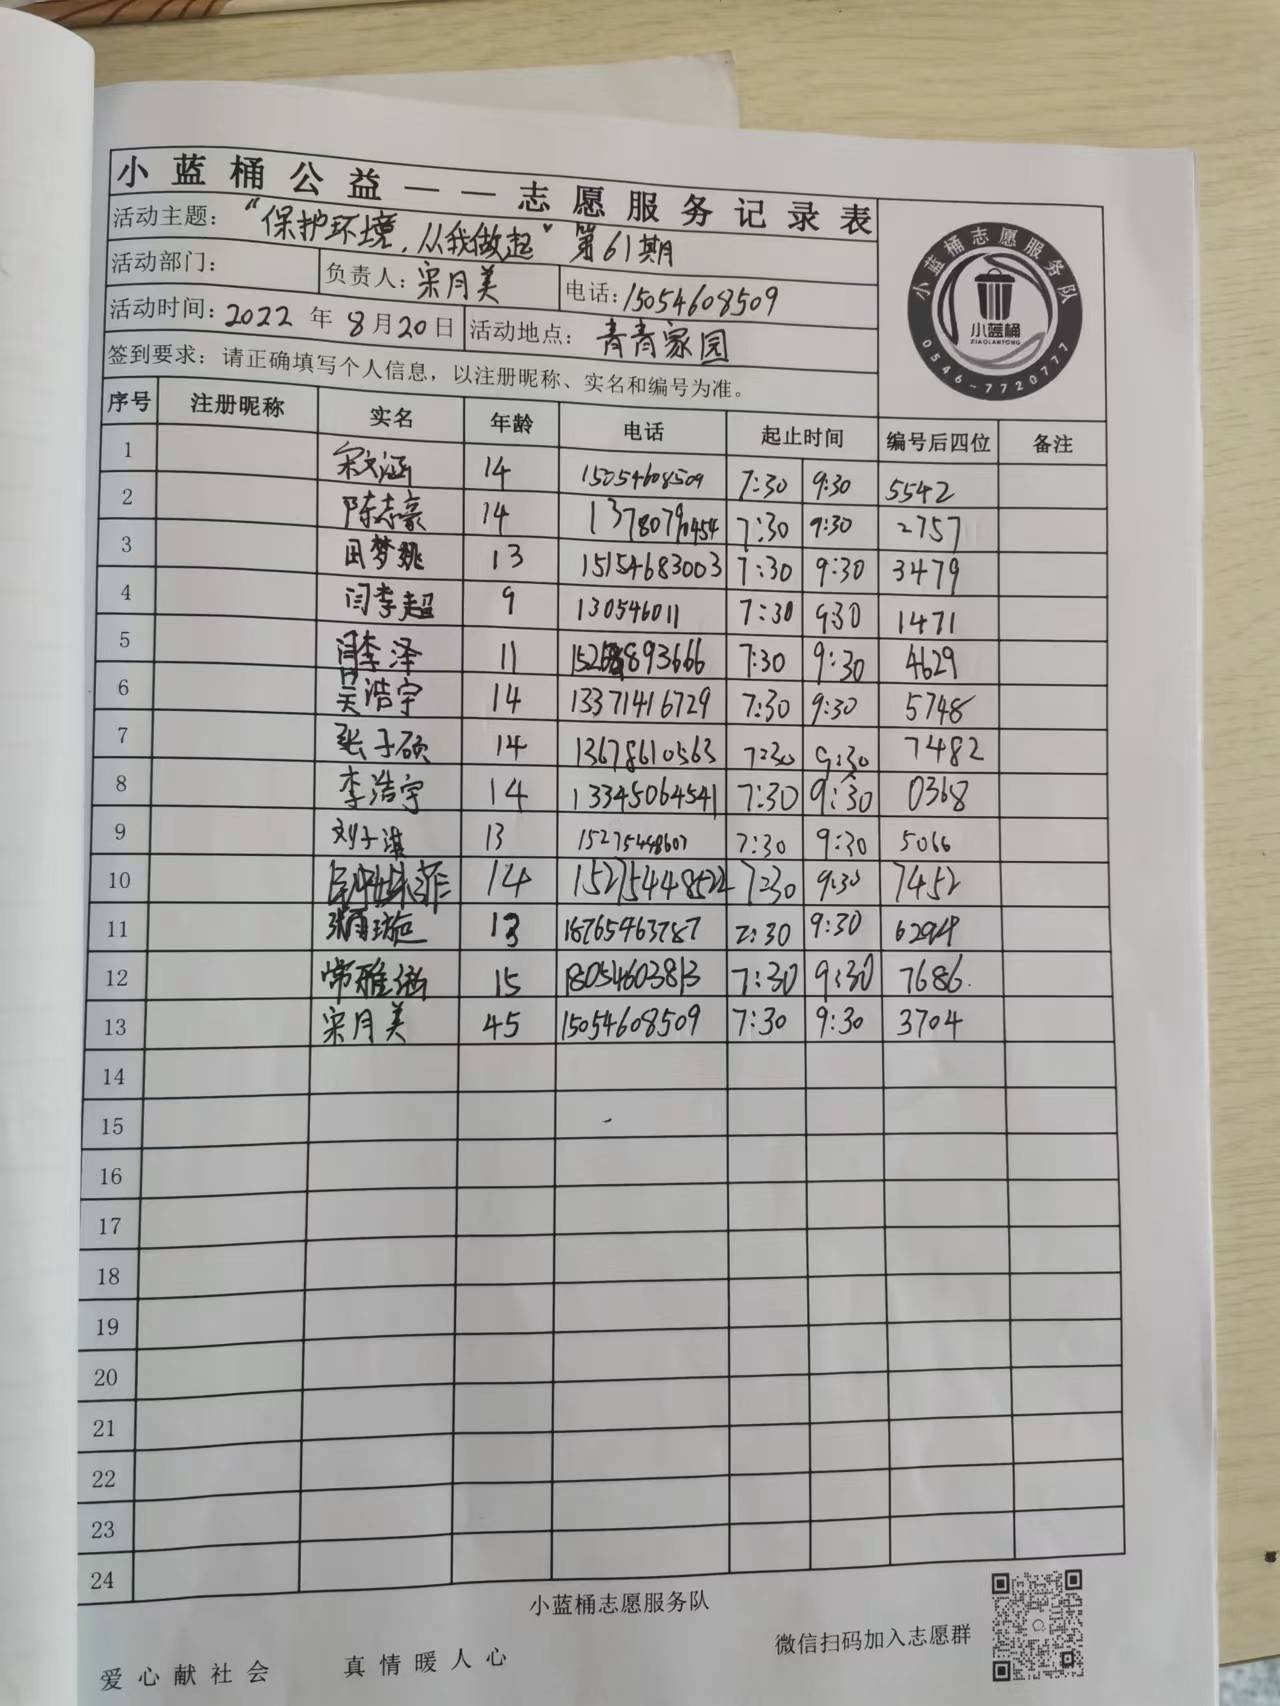 小蓝桶公益——志愿服务记录表
活动主题：“保护环境，从我做起”第61期
活动部门： 负责人：宋月美 电话：15054608509
活动时间：2022年8月20日 活动地点：青青家园
签到要求：请正确填写个人信息，以注册昵称、实名和编号为准。
小蓝桶志愿服务队
小蓝桶
XIAOLANTONG
0546-7720777
序号 注册昵称 实名 年龄 电话 起止时间 编号后四位 备注
1 宋文涵 14 15054608509 7:30 9:30 5542
2 陈志豪 14 7:30 9:30 2757
3 田梦 13 15154683003 7:30 9:30 3479
4 闫李超 9 130546011 7:30 9:30 1471
5 闫李泽 11 7:30 9:30 4629
6 吴浩宇 14 13371416729 7:30 9:30 5748
7 张子硕 14 13678610563 7:30 9:30 7482
8 李浩宇 14 13345064541 7:30 9:30 0368
9 刘子淇 13 15275448607 7:30 9:30 5066
10 14 15275448522 7:30 9:30 7452
11 13 18765463787 7:30 9:30
12 常雅涵 15 18054603813 7:30 9:30 7686
13 宋月美 45 15054608509 7:30 9:30 3704
14
15
16
17
18
19
20
21
22
23
24
小蓝桶志愿服务队
爱心献社会 真情暖人心 微信扫码加入志愿群